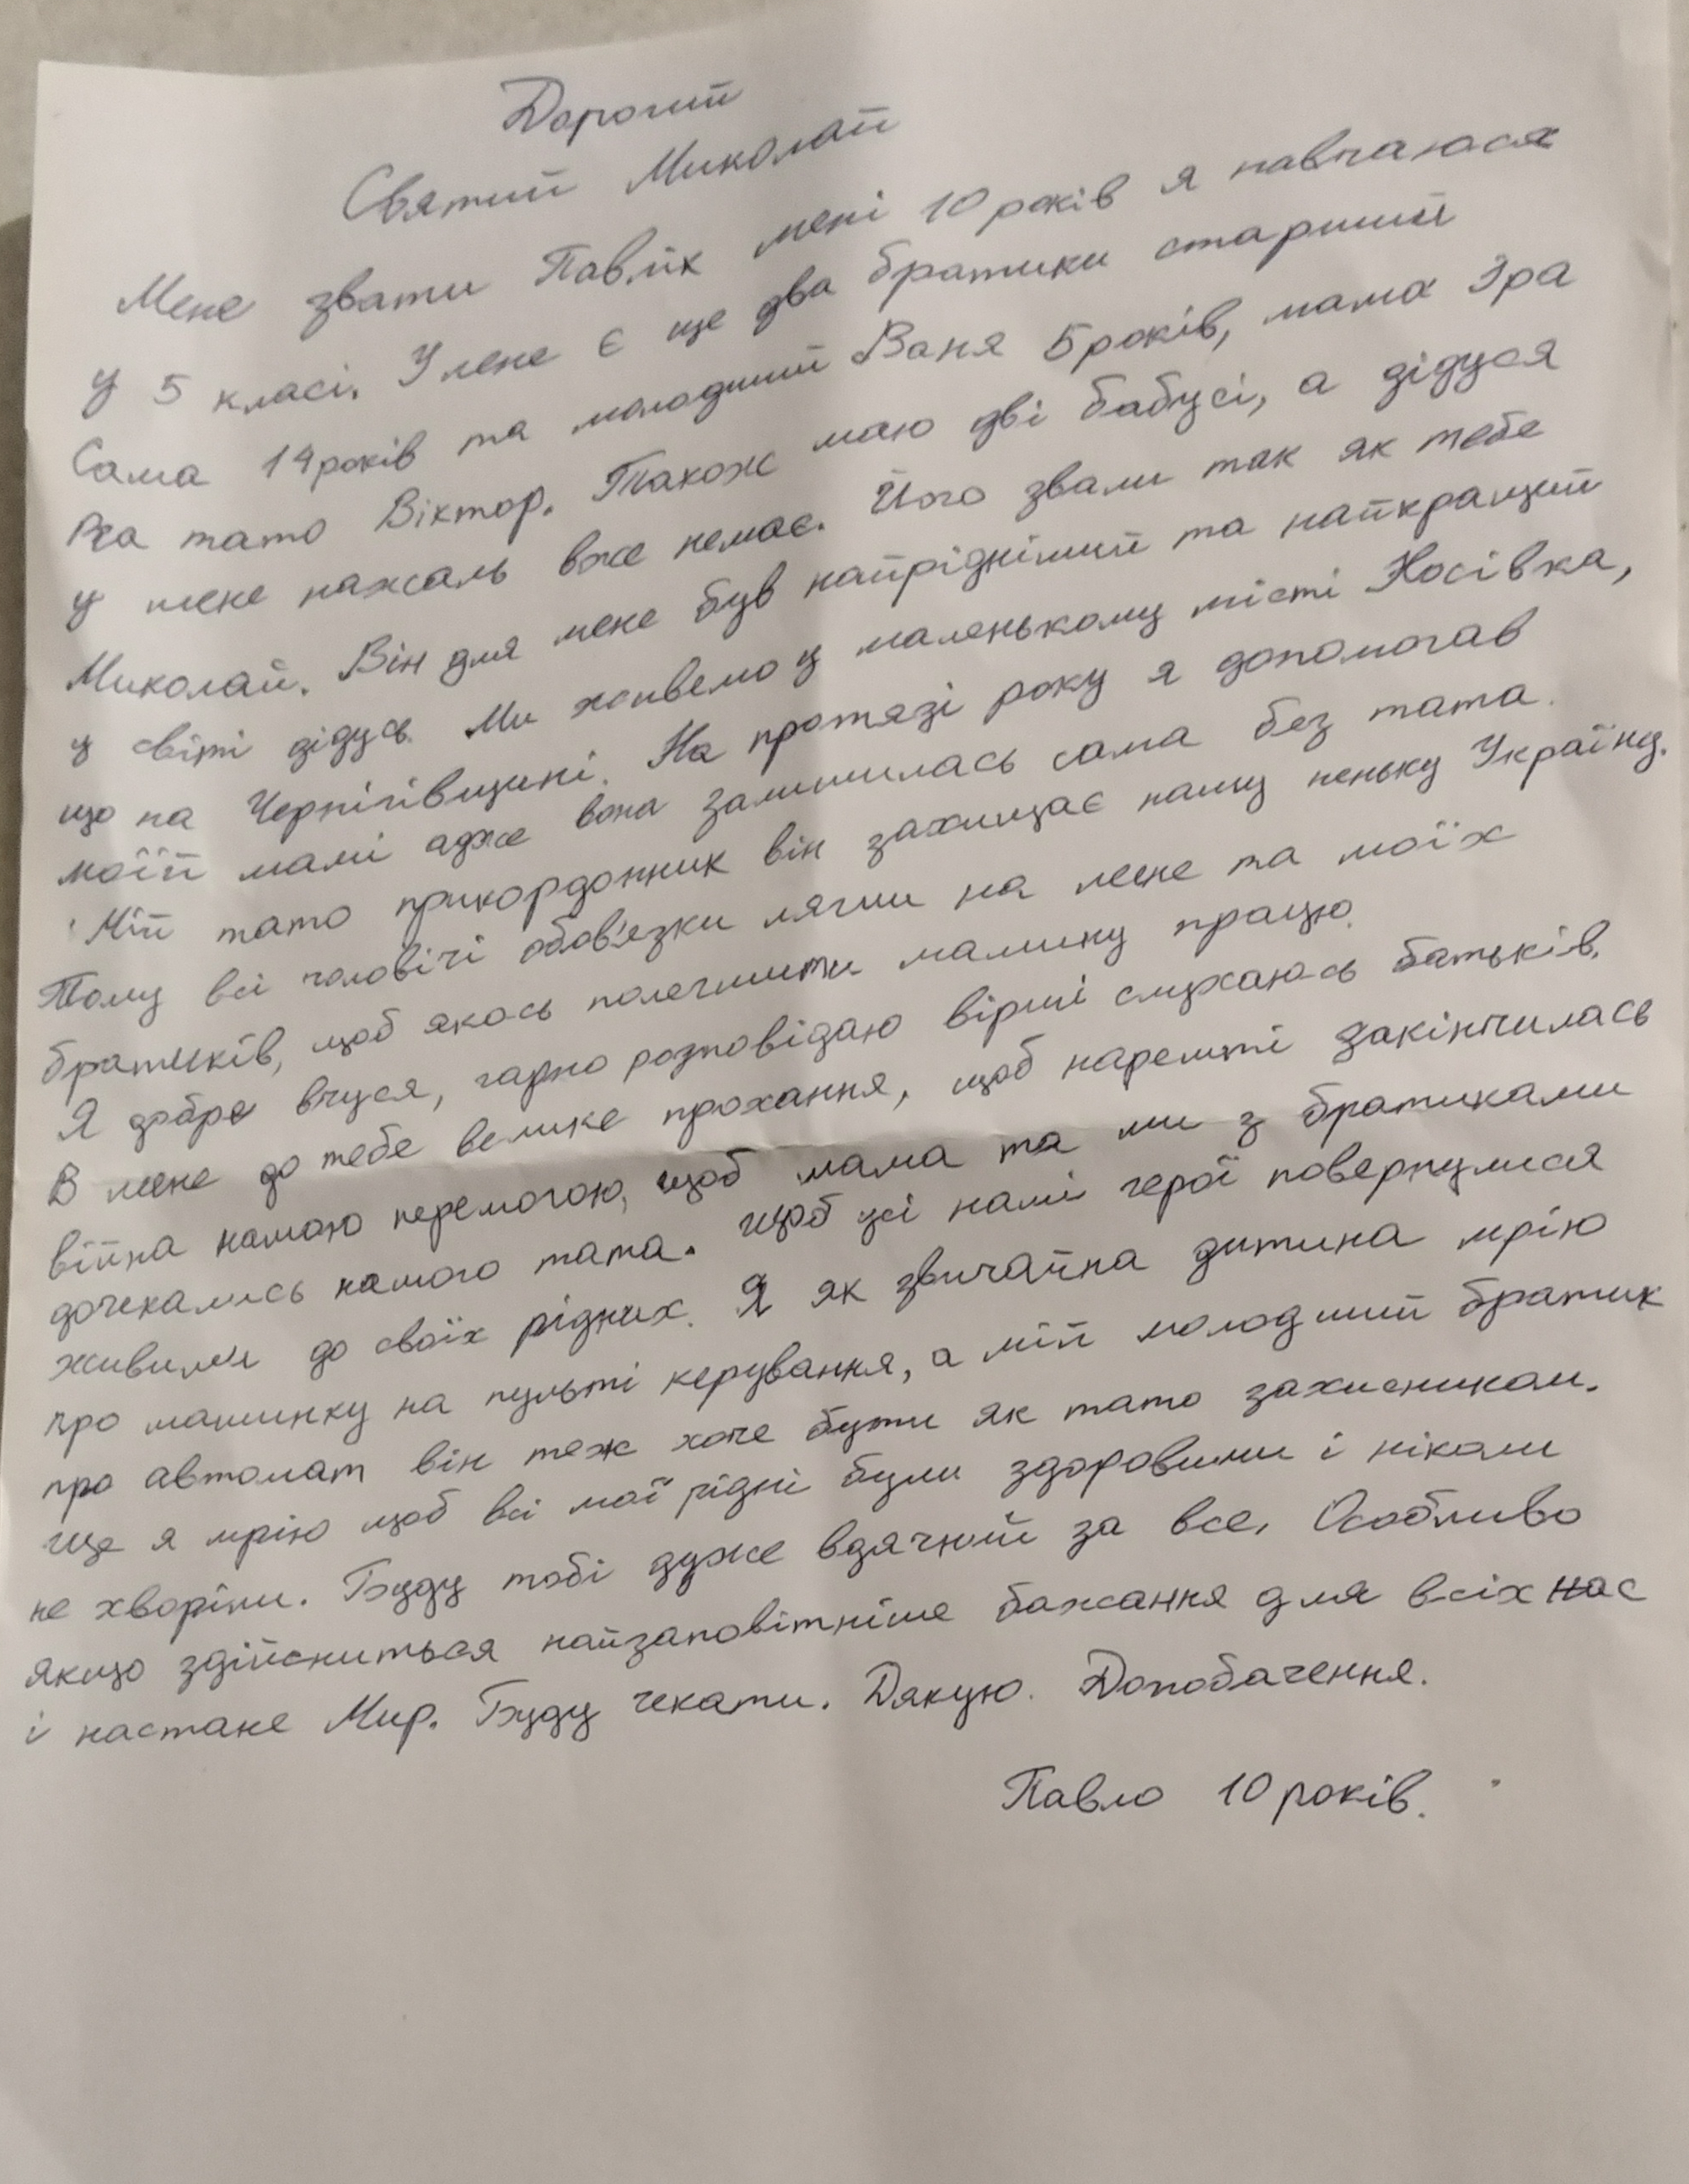 Дорогий
Святий Миколай
Мене звати Павлік мені 10 років я навчаюся
у 5 класі. У мене є ще два братики старший
Сама 14років та молодший Ваня 5років, мама Іра
та тато Віктор. Також маю дві бабусі, а дідуся
у мене нажаль вже немає. Його звали так як тебе
Миколай. Він для мене був найрідніший та найкращий
у світі дідусь. Ми живемо у маленькому місті Носівка,
що на Чернігівщині. На протязі року я допомогав
моїй мамі адже вона залишилась сама без тата.
Мій тато прикордонник він захищає нашу неньку Україну.
Тому всі чоловічі обов'язки лягли на мене та моїх
братиків, щоб якось полегшити мамину працю.
Я добре вчуся, гарно розповідаю вірші слухаюсь батьків.
В мене до тебе велике прохання, щоб нарешті закінчилась
війна нашою перемогою, щоб мама та ми з братиками
дочекались нашого тата. Щоб усі наші герої повернулися
живими до своїх рідних. Я як звичайна дитина мрію
про машинку на пульті керування, а мій молодший братик
про автомат він теж хоче бути як тато захисником.
Ще я мрію щоб всі мої рідні були здоровими і ніколи
не хворіли. Буду тобі дуже вдячний за все. Особливо
якщо здійсниться найзаповітніше бажання для всіх нас
і настане Мир. Буду чекати. Дякую. Допобачення.
Павло 10 років.